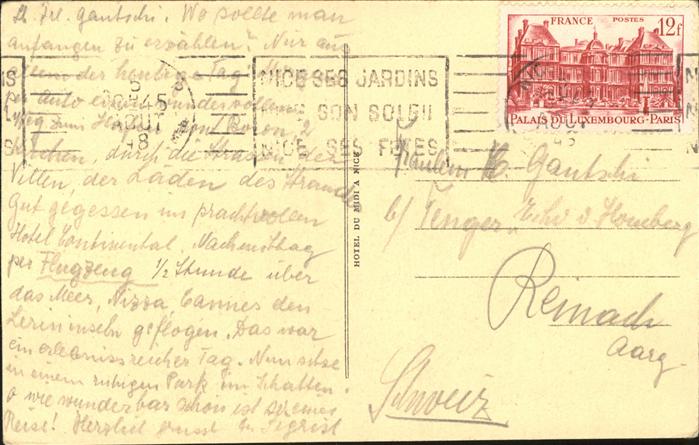 Lb. Frl. Gautschi! Wo sollte man
anfangen zu erzählen? Nur aus
der heutige Tag!
per Auto einen wundervollen
Weg zum
durch die Strassen der
Villen, der Läden des Strandes
Gut gegessen im prachtvollen
Hotel Continental. Nachmittag
per Flugzeug 1/2 Stunde über
das Meer, Nizza, Cannes den
Lerininseln geflogen. Das war
ein erlebnissreicher Tag. Nun sitze
in einem ruhigen Park im Schatten.
o wie wunderbar schön ist so eine
Reise! Herzlich grüsst
NICE SES JARDINS
SON SOLEIL
NICE SES FÊTES
AOUT
FRANCE POSTES 12f
PALAIS DU LUXEMBOURG-PARIS
HOTEL DU MIDI A NICE
Fräulein H. Gautschi
b/ Fenger
Reinach
Aarg.
Schweiz